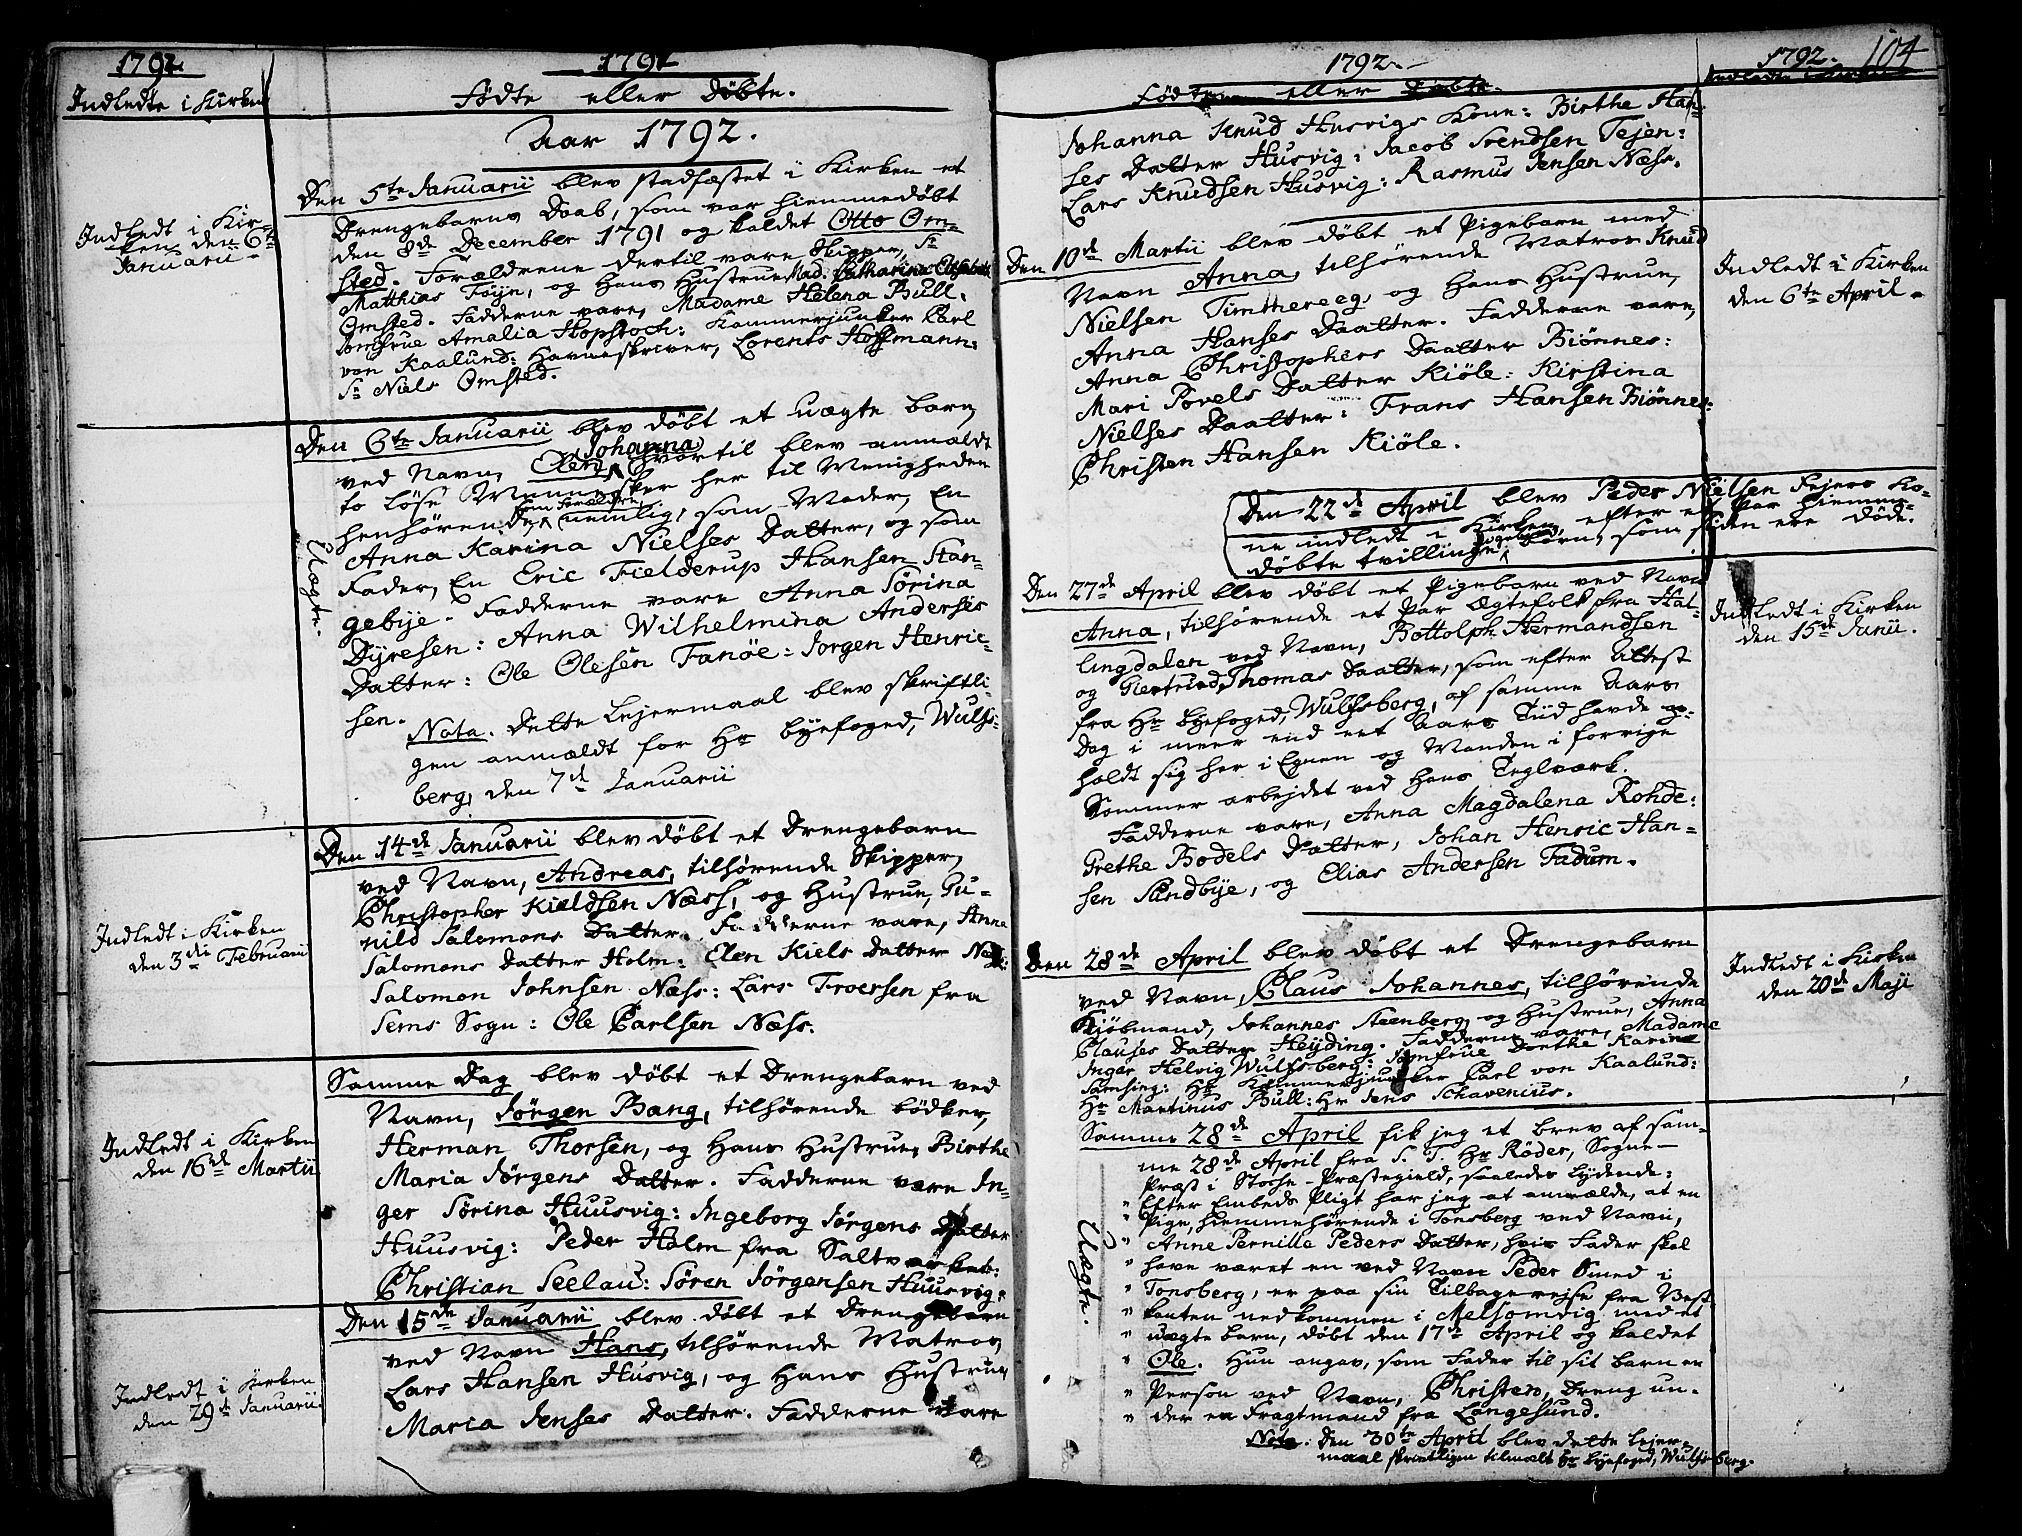 1792
Indledte i Kirken
1792
Fødte eller Døbte.
Aar 1792.
Den 5te Januarii blev stadfæstet i Kirken et
Drengebarns Daab, som var hiemmedøbt
den 8de December 1791 og kaldet Otto Om-
sted. Forældrene dertil vare Skipper, Sr
Matthias Føyn, og Hans Hustrue Mad. Catharina Elisabeth
Omsted. Fadderne vare, Madame Helena Bull.
Jomfrue Amalia Hopstoch: Kammerjunker Carl
von Kaalund: Havneskriver, Lorents Hoffmann:
Sr Niels Omsted.
Indledt i Kir-
ken den 6te
Januarii
Den 6te Januarii blev døbt et uægte barn,
ved Navn, Elen Johanna, hvortil blev anmældt
to løse Mennesker her til Menigheden
henhørende, som Forældre, nemlig, som Moder, En
Anna Karina Nielses Datter, og som
Fader, En Eric Fielderup Hansen Stan-
gebye. Fadderne vare Anna Sørina
Dyresen: Anna Wilhelmina Anderses
Datter: Ole Olesen Fanøe: Jørgen Henric-
sen.
Uægte.
Nota. Dette Lejermaal blev skriftli-
gen anmældt for Hr byefoged, Wulfs-
berg, den 7de Januarii
Den 14de Januarii blev døbt et Drengebarn
ved Navn, Andreas, tilhørende Skipper,
Christopher Kieldsen Næss, og Hustrue, Gu-
nild Salomons Datter. Fadderne vare, Anne
Salomons Datter Holm: Elen Kiels Datter Næss:
Salomon Johnsen Næss: Lars Troersen fra
Sems Sogn: Ole Carlsen Næss.
Indledt i Kirken
den 3die Februarii
Samme Dag blev døbt et Drengebarn ved
Navn, Jørgen Bang, tilhørende bødker,
Herman Thorsen, og Hans Hustrue, Birthe
Maria Jørgens Datter. Fadderne vare In-
ger Sørina Huusvig: Ingeborg Jørgens Datter
Huusvig: Peder Holm fra Saltværket:
Christian Seelau: Søren Jørgensen Huusvig.
Indledt i Kirken
den 16de Martii
Den 15de Januarii blev døbt et Drengebarn
ved Navn Hans, tilhørende Matros,
Lars Hansen Husvig, og Hans Hustrue
Maria Jenses Datter. Fadderne vare
Indledt i Kirken
den 29de Januarii.
1792
Fødte eller Døbte.
1792. 104
Indledte i Kirken
Johanna Knud Husvigs Kone: Birthe Han-
ses Datter Husvig: Jacob Svendsen Tejen:
Lars Knudsen Husvig: Rasmus Jensen Næss.
Den 10de Martii blev døbt et Pigebarn med
Navn Anna, tilhørende Matros Knud
Nielsen Timthereeg, og Hans Hustrue,
Anna Hanses Daatter. Fadderne vare,
Anna Christophers Daatter Biønnes:
Mari Povels Datter Kiøle: Kirstina
Nielses Daatter: Frans Hansen Biønnes:
Christen Hansen Kiøle.
Indledt i Kirken
den 6te April
Den 22de April blev Peder Nielsen Fejers Ko-
ne indledt i Kirken, efter et Par hiemme-
døbte tvillinge børn, som siden ere døde.
Den 27de April blev døbt et Pigebarn ved Navn
Anna, tilhørende et Par Ægtefolk fra Hal-
lingdalen ved Navn, Bottolph Hermandsen
og Giertrud Thomas Daatter, som efter Attest
fra Hr Byefoged, Wulfsberg, af samme Aars
Dag i meer end eet Aars Tiid havde op-
holdt sig her i Egnen og Manden i forrige
Sommer arbejdet ved Hans Teglværk.
Fadderne vare, Anna Magdalena Rohde:
Grethe Bodels Datter, Johan Henric Han-
sen Sandbye, og Elias Andersen Fadum.
Indledt i Kirken
den 15de Junii.
Den 28de April blev døbt et Drengebarn
ved Navn, Claus Johannes, tilhørende
Kiøbmand, Johannes Steenberg, og Hustrue, Anna
Clauses Datter Heyding. Fadderne vare, Madame
Inger Helvig Wulfsberg: Jomfrue Dorthe Karine
Samsing: Hr Kammerjunker Carl von Kaalund:
Hr Martinus Bull: Hr Jens Schavenius.
Indledt i Kirken
den 20de Maji
Samme 28de April fik jeg et brev af sam-
me 28de April fra S. T. Hr Røder, Sogne-
Præst i Stocke-Præstegield, saaledes lydende:
" Efter Embeds Pligt har jeg at anmælde, at en
" Pige, hiemmehørende i Tonsberg ved Navn,
" Anne Pernille Peders Datter, hvis Fader skal
" have været en ved Navn Peder Smed i
" Tonsberg, er paa sin Tilbagerejse fra Vest-
" kanten nedkommen i Melsomvig med et
" uægte barn, døbt den 17de April og kaldet
" Ole. Hun angav, som Fader til sit barn en
" Person ved Navn, Christen, Dreng un-
" der en Fragtmand fra Langesund.
Uægte.
Nota: Den 30te April blev dette Lejer-
maal skriftligen tilmælt Hr Byefoged, Wulfsberg.